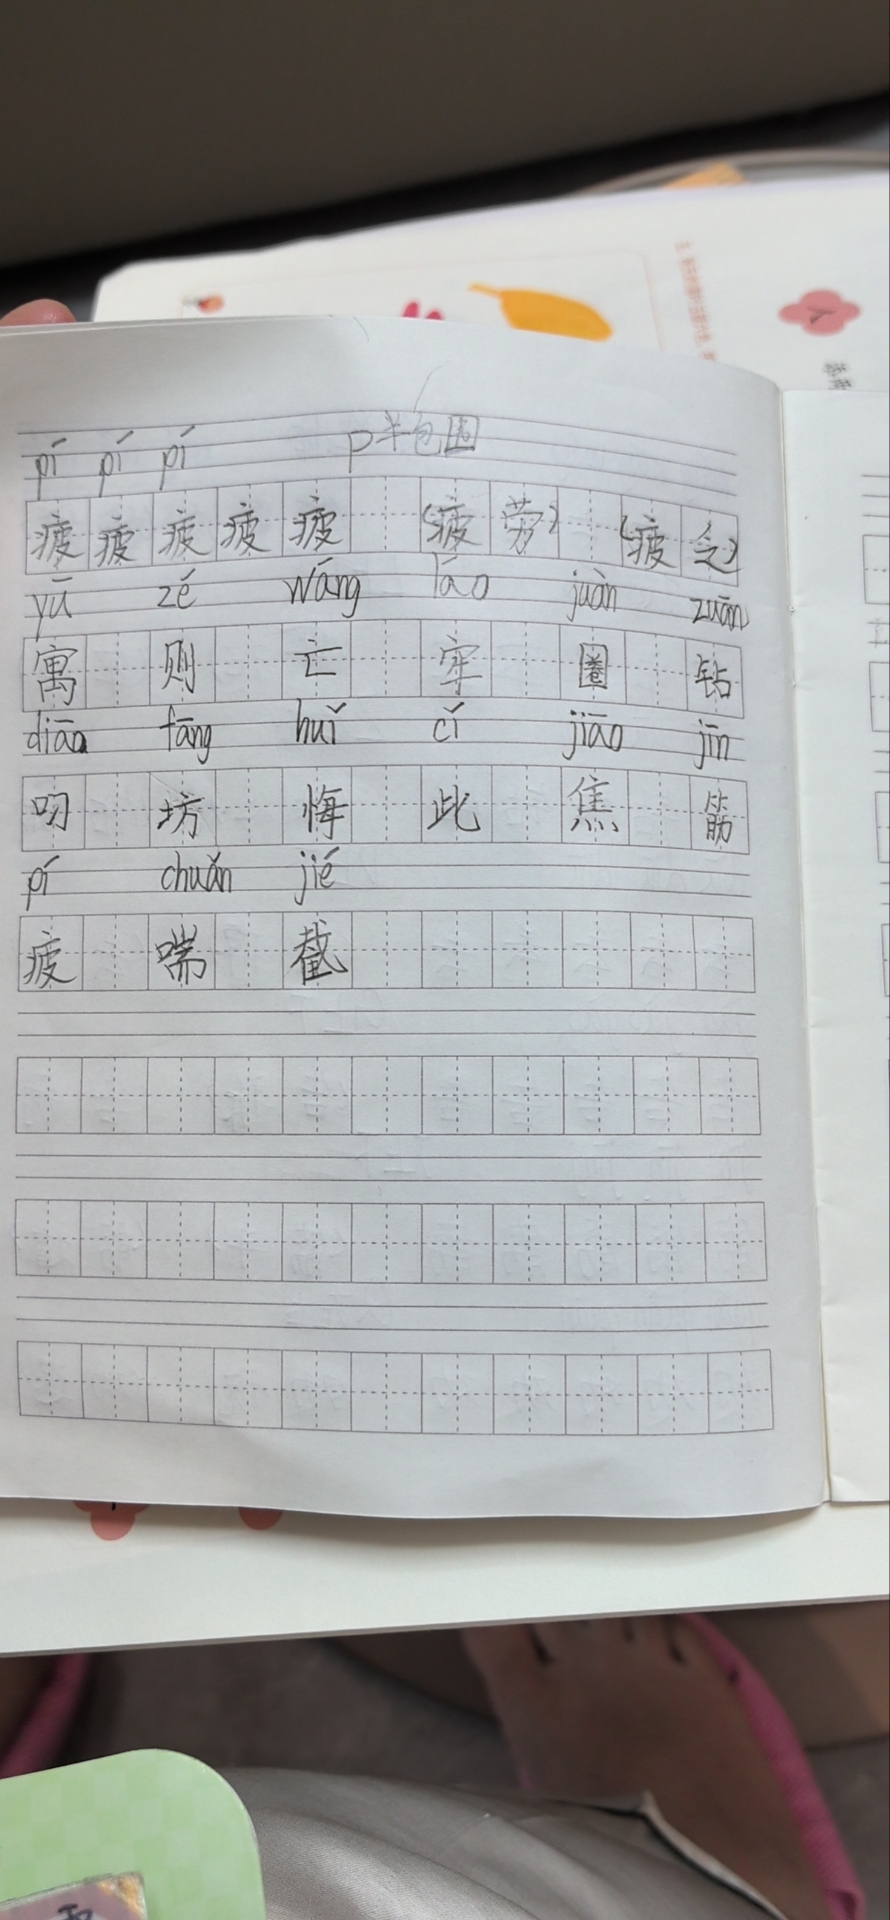 pí pí pí p半包围
疲疲疲疲疲 (疲劳) (疲乏)
yù zé wáng láo juàn zuān
寓 则 亡 牢 圈 钻
diāo fāng huǐ cǐ jiāo jīn
叼 坊 悔 此 焦 筋
pí chuǎn jié
疲 喘 截